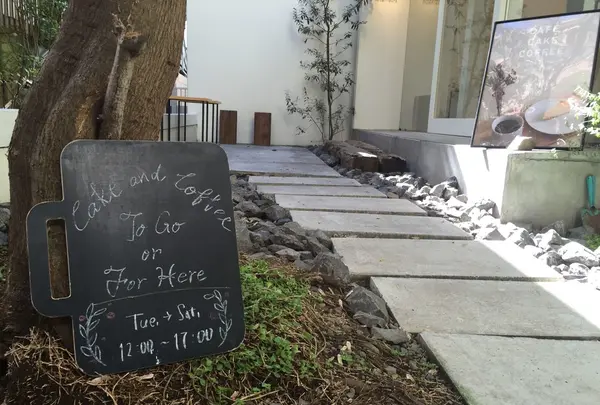 Cake and Coffee
To Go
or
For Here
Tue. → Sat.
12:00~17:00
CAFE
CAKE
COFFEE